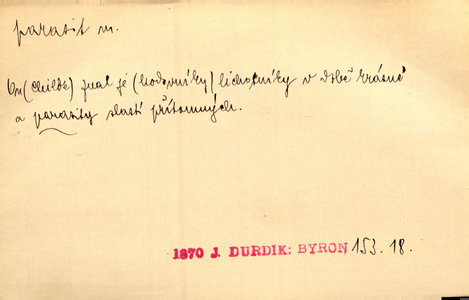 parasit m.
On (Childe) znal je (hodovníky) lichotníky v době krásné
a parasity slastí přítomných.
1870 J. DURDIK: BYRON 153. 18.